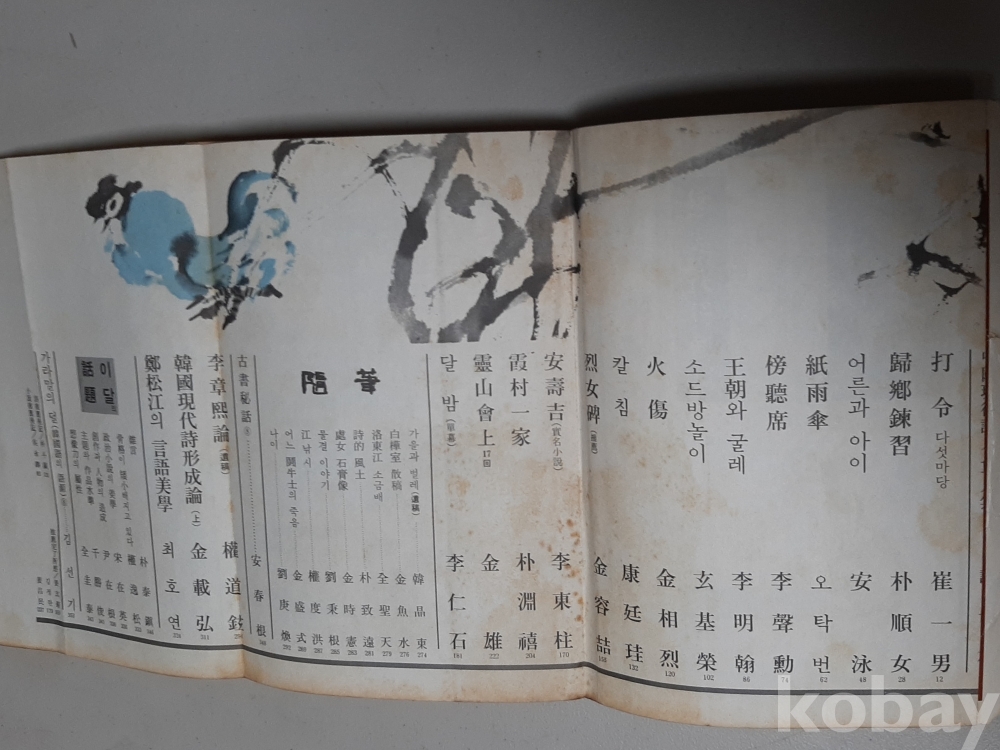 打令 다섯마당 崔一男 12
歸鄕鍊習 朴順女 28
어른과 아이 安泳 48
紙雨傘 오탁번 62
傍聽席 李聲勳 74
王朝와 굴레 李明翰 86
소드방놀이 玄基榮 102
火傷 金相烈 120
칼침 康廷珪 132
烈女碑 金容喆
安壽吉(實名小說) 李東柱 170
霞村一家 朴淵禧 204
靈山會上 17回 金雄 222
달밤(單幕) 李仁石 181
隨筆
가을과 벌레(遺稿) 韓晶東 274
白樺室 散稿 金魚水 276
洛東江 소금배 全聖天 279
詩的 風土 朴致遠 281
處女 石膏像 金時憲 283
물결 이야기 劉秉根 285
江 낚시 權度洪
어느 鬪牛士의 죽음 金盛式
나이 劉庚煥 292
古書秘話 安春根
李章熙論(遺稿) 權道鉉
韓國現代詩形成論(上) 金載弘 211
鄭松江의 言語美學 최호연
이달의 話題
政治小說의 宋在英
創作과 人物의 造成 尹在根
主題와 作品水準 千勝俊
想像力의 屬性 全圭泰
가라말의 덜(韓國語의 語源) 김선기
kobay